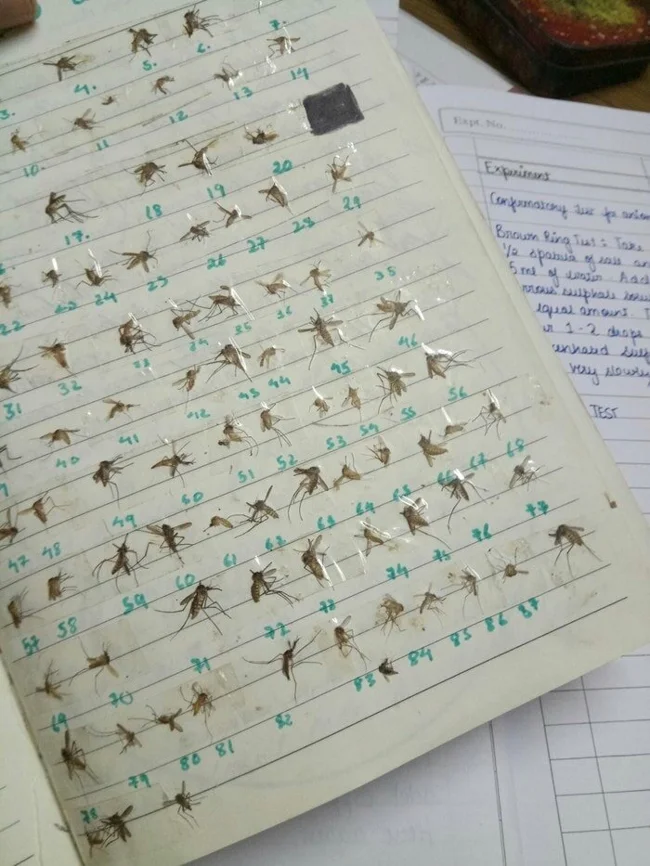 3. 4. 5. 6. 7.
10. 11 12 13 14
17. 18 19 20
22 23 24 25 26 27 28 29
31 32 35 36 37 38
40 41 42 43 44 45 46
47 48 49 50 51 52 53 54 55 56
57 58 59 60 61 62 63 64 65 66 67 68
69 70 71 72 73 74 75 76 77
78 79 80 81 82 83 84 85 86 87
Expt. No.
Experiment
Confirmatory Test for anion
Brown Ring Test : Take
1/2 spatula of salt an
5 ml of water. Add
rrous sulphate solu
equal amount. T
1-2 drops
very slowly
TEST